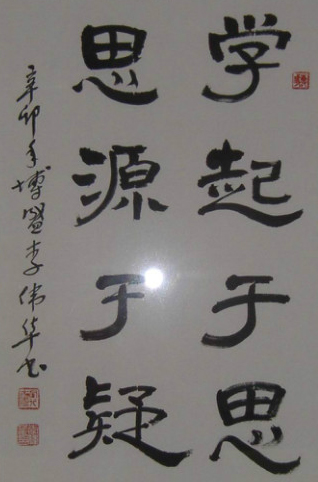 学起于思
思源于疑
辛卯年博盛李伟华书